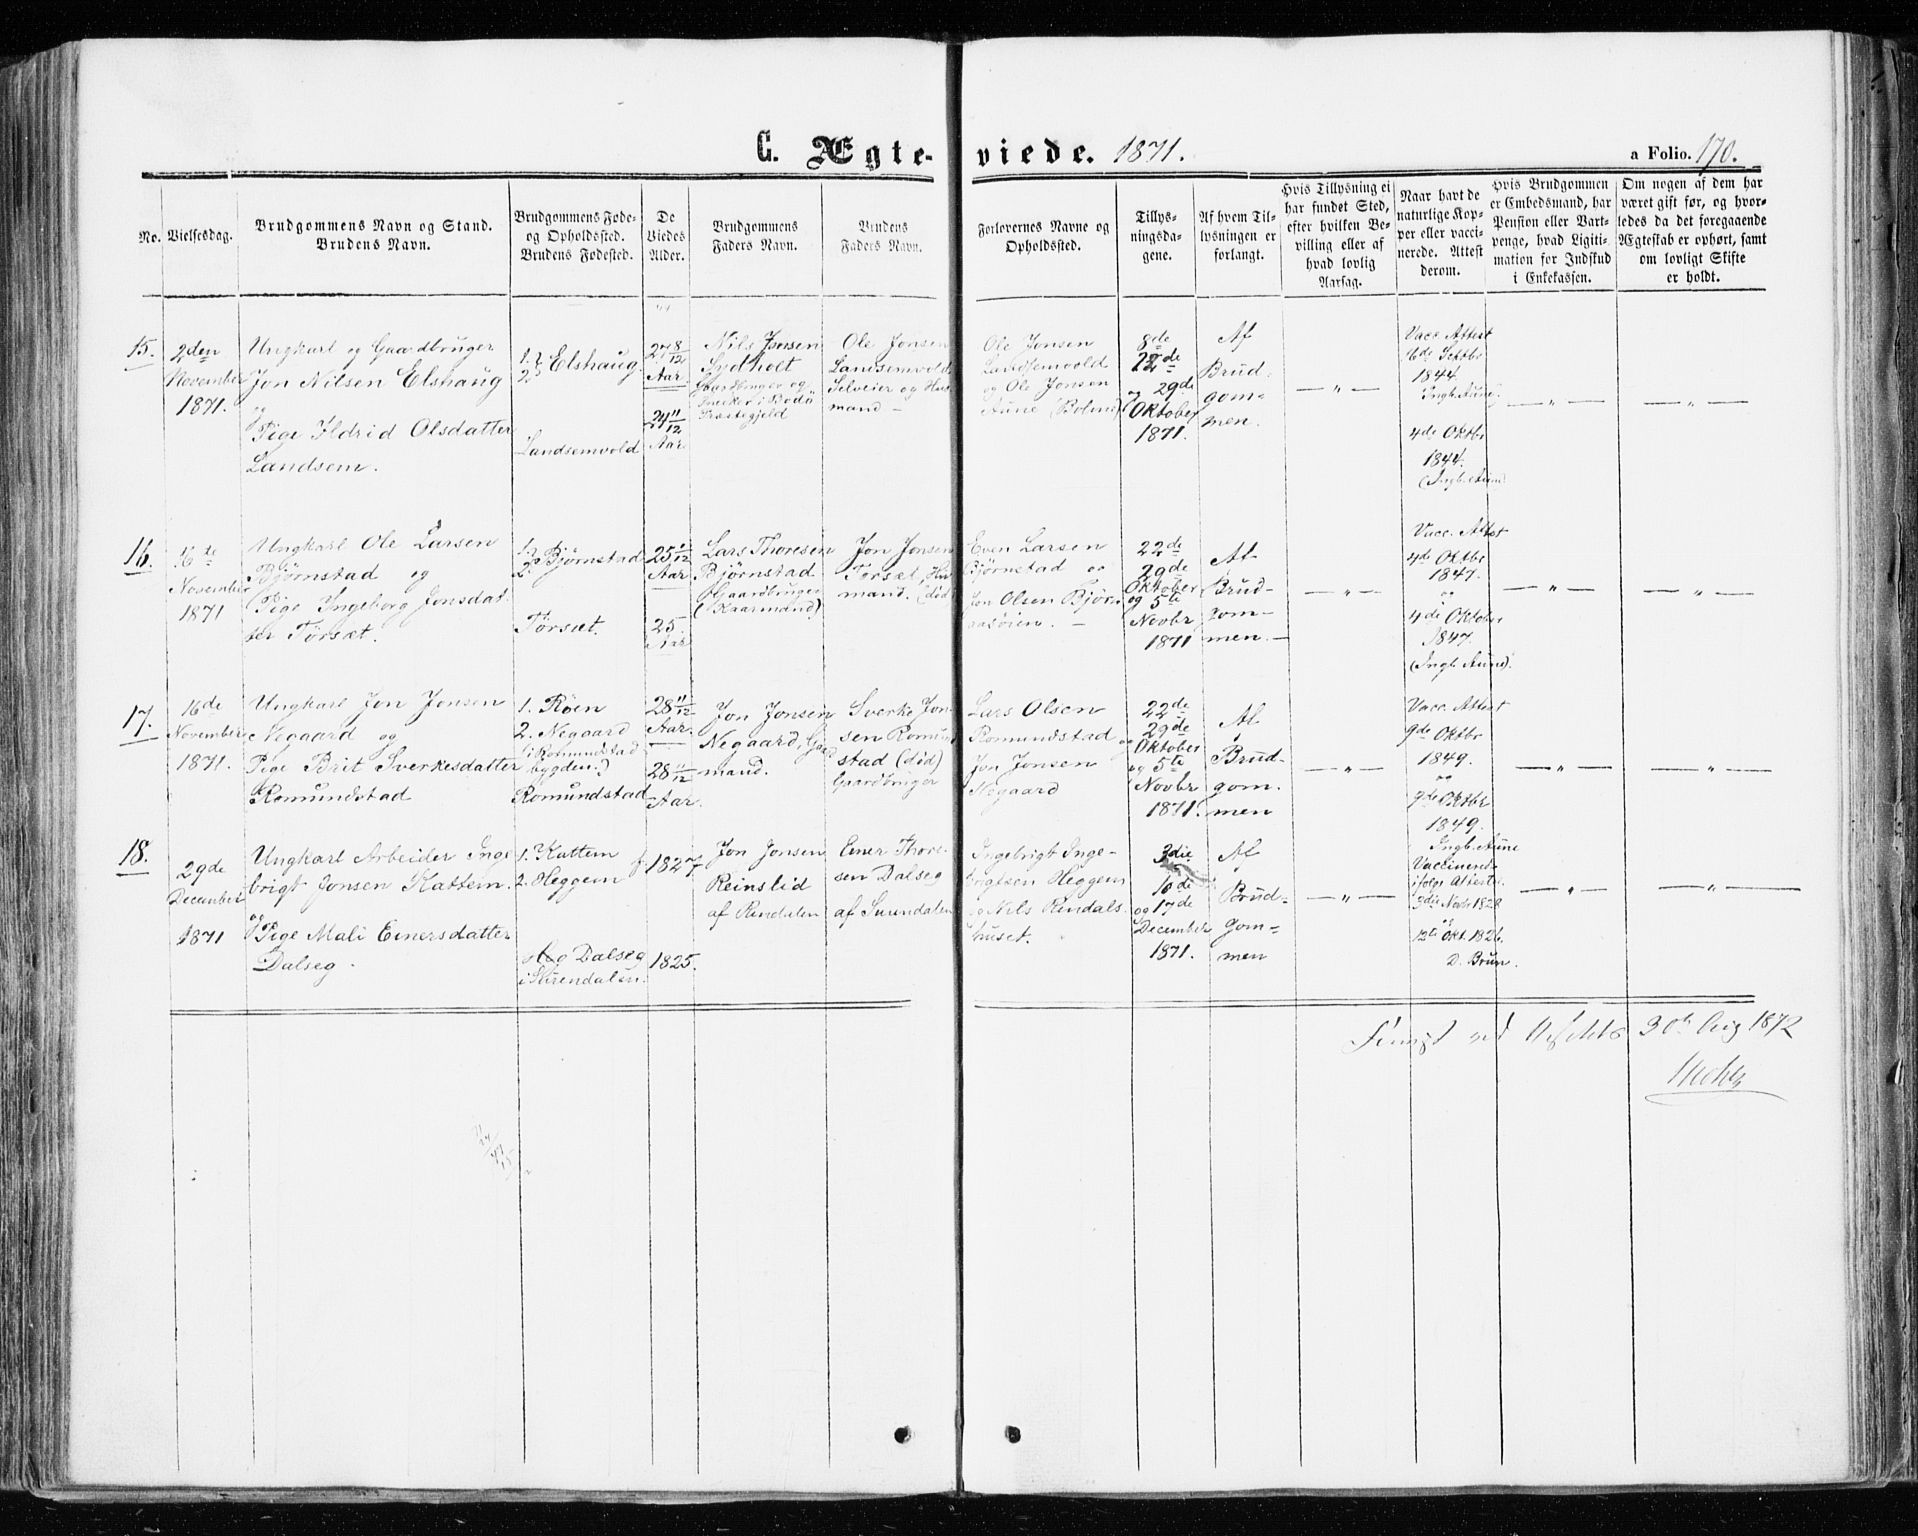 C. Ægteviede. 1871.
a Folio. 170.
No.
Vielsesdag.
Brudgommens Navn og Stand.
Brudens Navn.
Brudgommens Føde-
og Opholdssted.
Brudens Fødested.
De
Viedes
Alder.
Brudgommens
Faders Navn.
Brudens
Faders Navn.
Forlovernes Navne og
Opholdssted.
Tillys-
ningsda-
gene.
Af hvem Til-
lysningen er
forlangt.
Hvis Tillysning ei
har fundet Sted,
efter hvilken Be-
villing eller af
hvad lovlig
Aarsag.
Naar havt de
naturlige Kop-
per eller vacci-
nerede. Attest
derom.
Hvis Brudgommen
er Embedsmand, har
Pension eller Vart-
penge, hvad Ligiti-
mation for Indskud
i Enkekassen.
Om nogen af dem har
været gift før, og hvor-
ledes da det foregaaende
Ægteskab er ophørt, samt
om lovligt Skifte
er holdt.
15.
2den
November
1871.
Ungkarl og Gaardbruger
Jon Nilsen Elshaug
og
Pige Ildrid Olsdatter
Landsem.
1. 2. Elshaug.
Landsemvold
27 8/12
Aar
24 11/12
Aar
Nils Jonsen
Sydholt
Gaardbruger og
i Bodö
Præstegjeld
Ole Jonsen
Landsemvold
Selveier og Hus
mand –
Ole Jonsen
Landsemvold
og Ole Jonsen
Aune (Bolme)
8de
22de
og 29de
Oktober
1871.
Af
Brud-
gom-
men.
– „ –
Vacc. Attest
6de Septbr
1844.
Ingb. Aune
4de Oktbr
1844.
(Ingb. Aune)
– „ –
– „ –
16.
16te
November
1871
Ungkarl Ole Larsen
Bjørnstad og
Pige Ingeborg Jonsdat-
ter Törsæt.
1. 2. Bjørnstad
Törsæt.
25 1/12
Aar
25.
Aar
Lars Thoresen
Bjørnstad
Gaardbruger
(Kaarmand)
Jon Jonsen
Torsæt, Hus
mand. (död)
Even Larsen
Bjørnstad og
Jon Olsen Bjør-
aasøien. –
22de
29de
Oktober
og 5te
Novbr
1871
Af
Brud-
gom-
men. –
– „ –
Vacc. Attest
4de Oktbr
1847.
og
4de Oktober
1847.
(Ingb. Aune).
– „ –
– „ –
17.
16de
November
1871.
Ungkarl Jon Jonsen
Negaard og
Pige Brit Sverkesdatter
Romundstad
1. Röen
2. Negaard
(i Romundstad
bygden.)
Romundstad
28 11/12
Aar.
28 11/12
Aar.
Jon Jonsen
Negaard, Gaard
mand.
Sverke Jon-
sen Romund
stad (död)
Gaardbruger
Lars Olsen
Romundstad og
Jon Jonsen
Negaard
22de
29de
Oktober
og 5te
Novbr
1871.
Af
Brud-
gom-
men
– „ –
Vacc. Attest
9de Oktbr
1849.
og
9de Oktbr
1849.
Ingb. Aune
– „ –
– „ –
18.
29de
December
1871
Ungkarl Arbeider Inge
brigt Jonsen Kattem.
og
Pige Mali Einersdatter
Dalseg.
1. Kattem
2. Heggem
Dalseg
i Surendalen.
f. 1827.
1825.
Jon Jonsen
Reinslid
af Rindalen
Einer Thore-
sen Dalseg
af Surendalen
Ingebrigt Inge-
brigtsen Heggem
og Nils Rindals-
huset.
3die
10de
og 17de
December
1871.
Af
Brud-
gom-
men
– „ –
Vaccineret
ifølge Attester
3die Novbr 1828
og
12te Okt. 1826.
D. Brun.
– „ –
– „ –
30te Aug 1872